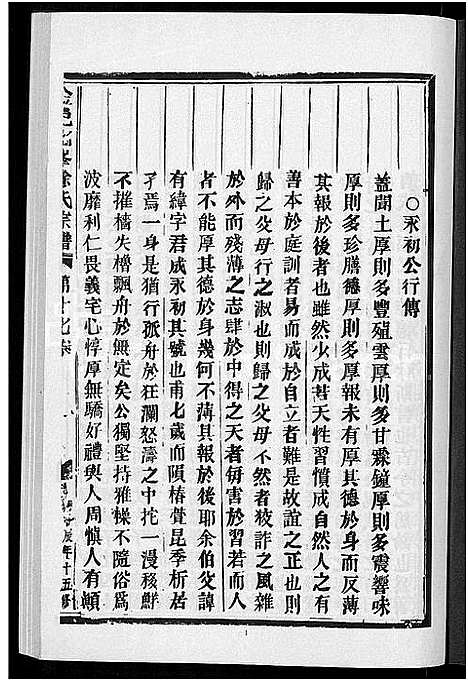 ○永初公行傳
蓋聞土厚則多豐殖雲厚則多甘霖鐘厚則多震響味
厚則多珍膳德厚則多厚報未有厚其德於身而反薄
其報於後者也雖然少成若天性習慣成自然人之有
善本於庭訓者易而成於自立者難是故誼之正也則
歸之父母行之淑也則歸之父母不然者狡詐之風雜
於外而殘薄之志肆於中得之天者每害於習若而人
者不能厚其德於身幾何不薄其報於後耶余伯父諱
有緯字君成永初其號也甫七歲而隕椿萱昆季析居
孑焉一身是猶行孤舟於狂瀾怒濤之中拕一漫移鮮
不摧檣失櫓飄舟於無定矣公獨堅持雅操不隨俗爲
波靡利仁畏義宅心惇厚無驕好禮與人周愼人有顚
峯徐氏宗譜
第十七
年十五修